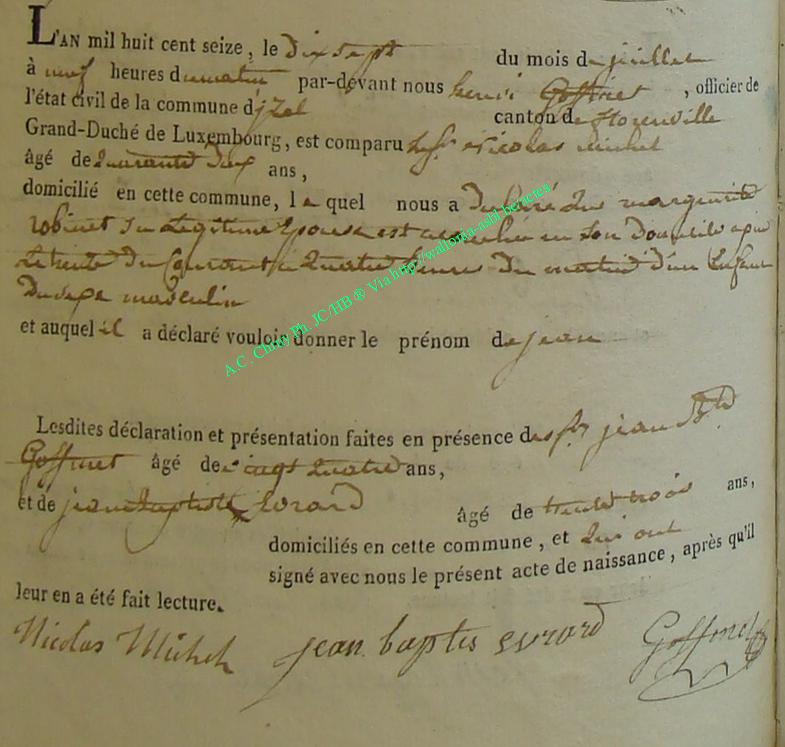 L'AN mil huit cent seize, le Dix sept du mois de juillet
à neuf heures du matin par-devant nous henri Goffinet, officier de
l'état civil de la commune d'jzel canton de florenville
Grand-Duché de Luxembourg, est comparu Le Sr nicolas michel
âgé de Quarante Deux ans,
domicilié en cette commune, le quel nous a Déclaré Que marguerite
robinet Sa Legitime Epouse est accouchée en Son Domicile
Le trente Du Courant à Quatre heures Du matin D'un Enfant
Du sexe masculin
et auquel il a déclaré vouloir donner le prénom de jean
Lesdites déclaration et présentation faites en présence des Srs jean Bte
Goffinet âgé de vingt Quatre ans,
et de jean Baptiste Evrard âgé de trente trois ans,
domiciliés en cette commune, et Qui ont
signé avec nous le présent acte de naissance, après qu'il
leur en a été fait lecture.
Nicolas Michel jean baptis evrard Goffinet
A.C. Chiny Ph. JC/HB ® Via http://wallonia-asbl.be/actes